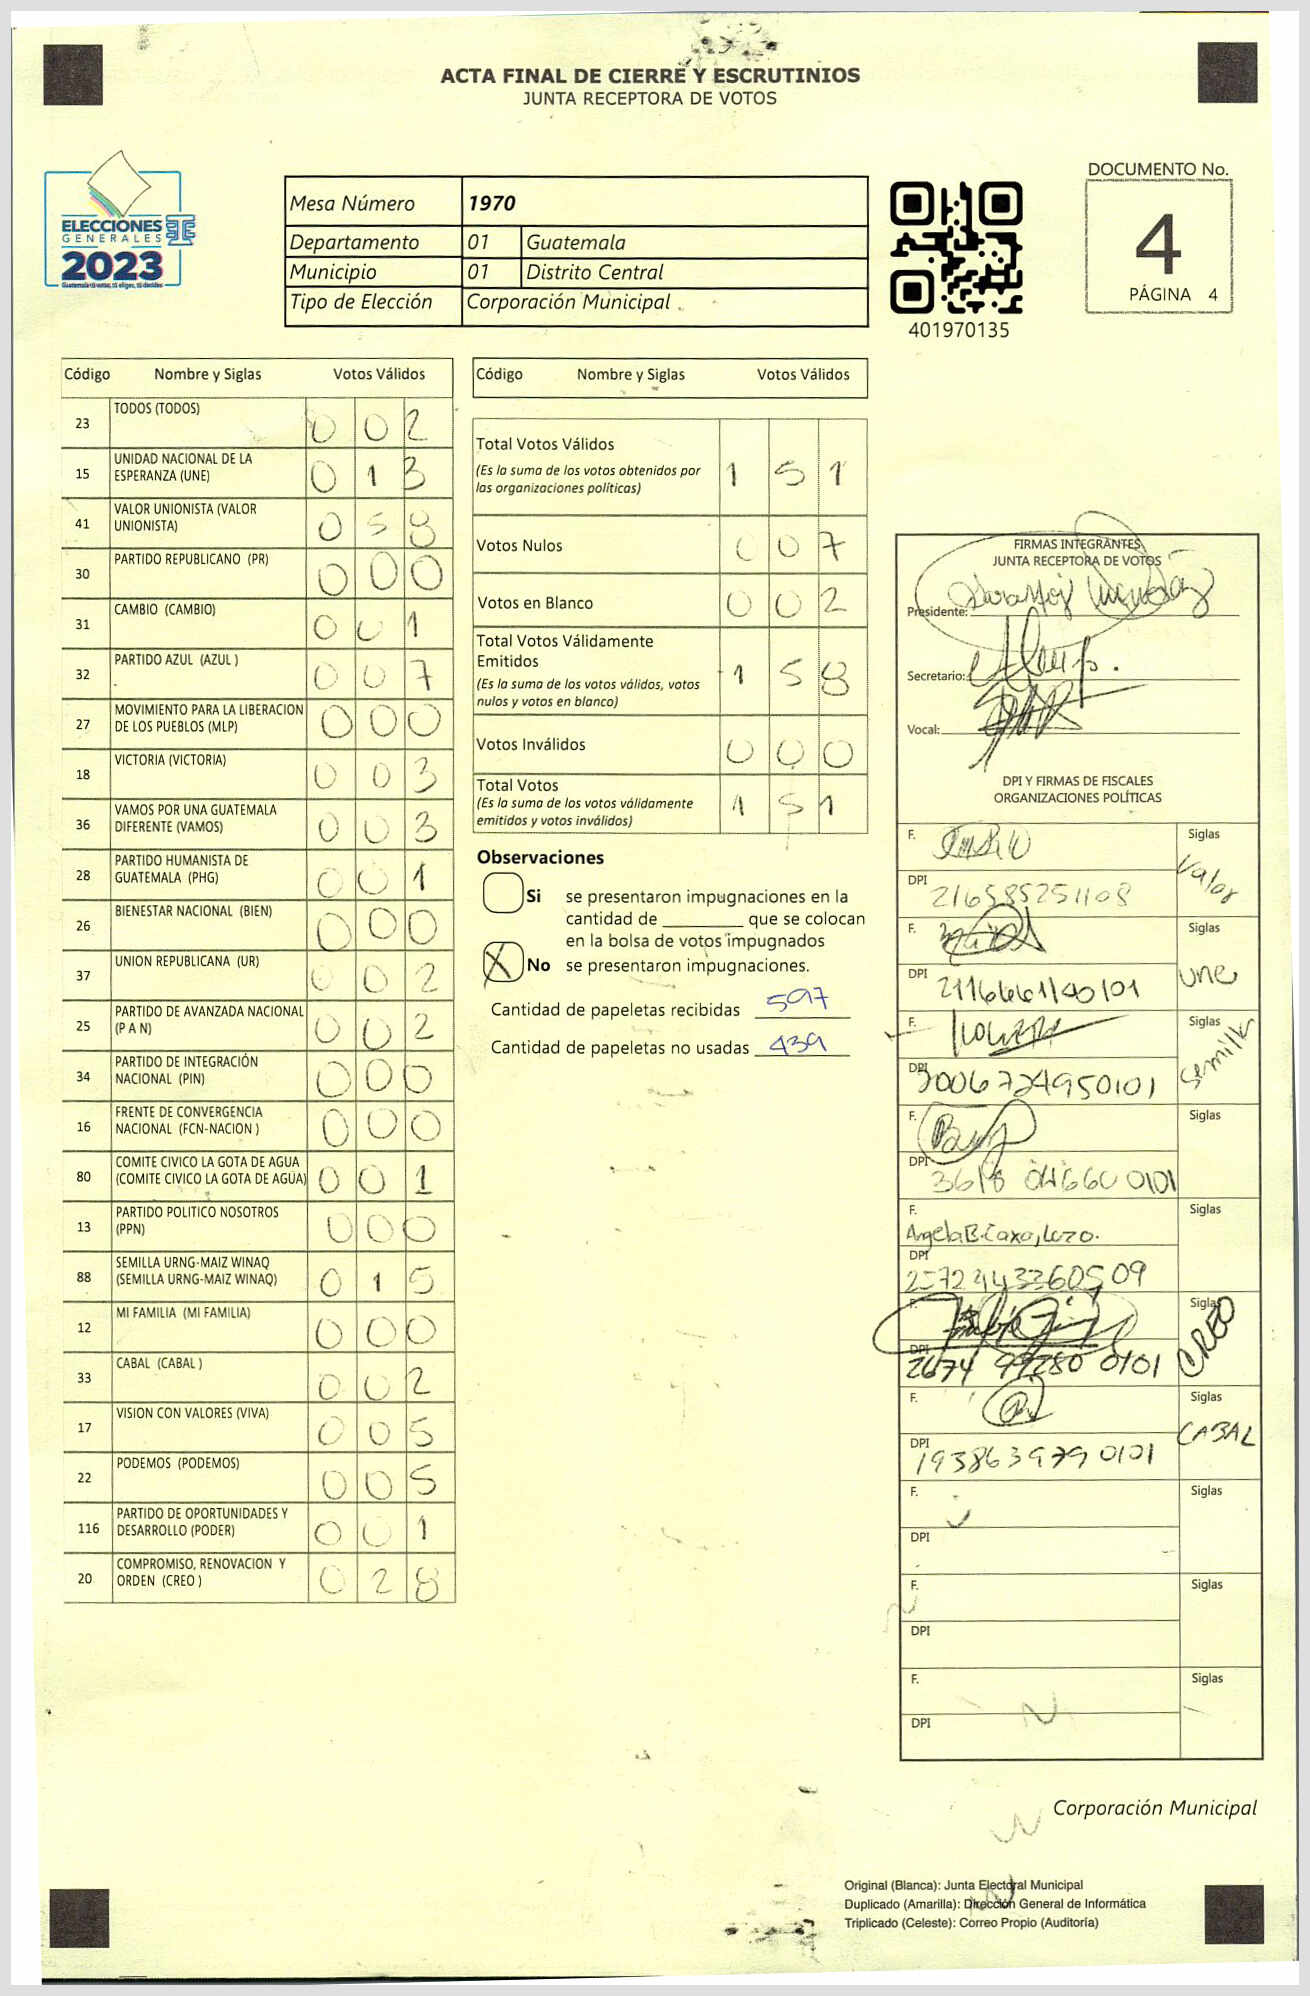 ACTA FINAL DE CIERRE Y ESCRUTINIOS
JUNTA RECEPTORA DE VOTOS
ELECCIONES
GENERALES
2023
Guatemala tú votas, tú eliges, tú decides
Mesa Número 1970
Departamento 01 Guatemala
Municipio 01 Distrito Central
Tipo de Elección Corporación Municipal
401970135
DOCUMENTO No.
4
PÁGINA 4
Código Nombre y Siglas Votos Válidos
23 TODOS (TODOS) 0 0 2
15 UNIDAD NACIONAL DE LA
ESPERANZA (UNE) 0 1 3
41 VALOR UNIONISTA (VALOR
UNIONISTA) 0 5 8
30 PARTIDO REPUBLICANO (PR) 0 0 0
31 CAMBIO (CAMBIO) 0 0 1
32 PARTIDO AZUL (AZUL ) 0 0 7
27 MOVIMIENTO PARA LA LIBERACION
DE LOS PUEBLOS (MLP) 0 0 0
18 VICTORIA (VICTORIA) 0 0 3
36 VAMOS POR UNA GUATEMALA
DIFERENTE (VAMOS) 0 0 3
28 PARTIDO HUMANISTA DE
GUATEMALA (PHG) 0 0 1
26 BIENESTAR NACIONAL (BIEN) 0 0 0
37 UNION REPUBLICANA (UR) 0 0 2
25 PARTIDO DE AVANZADA NACIONAL
(P A N) 0 0 2
34 PARTIDO DE INTEGRACIÓN
NACIONAL (PIN) 0 0 0
16 FRENTE DE CONVERGENCIA
NACIONAL (FCN-NACION ) 0 0 0
80 COMITE CIVICO LA GOTA DE AGUA
(COMITE CIVICO LA GOTA DE AGUA) 0 0 1
13 PARTIDO POLITICO NOSOTROS
(PPN) 0 0 0
88 SEMILLA URNG-MAIZ WINAQ
(SEMILLA URNG-MAIZ WINAQ) 0 1 5
12 MI FAMILIA (MI FAMILIA) 0 0 0
33 CABAL (CABAL ) 0 0 2
17 VISION CON VALORES (VIVA) 0 0 5
22 PODEMOS (PODEMOS) 0 0 5
116 PARTIDO DE OPORTUNIDADES Y
DESARROLLO (PODER) 0 0 1
20 COMPROMISO, RENOVACION Y
ORDEN (CREO ) 0 2 8
Código Nombre y Siglas Votos Válidos
Total Votos Válidos 1 5 1
(Es la suma de los votos obtenidos por
las organizaciones políticas)
Votos Nulos 0 0 7
Votos en Blanco 0 0 2
Total Votos Válidamente
Emitidos 1 5 8
(Es la suma de los votos válidos, votos
nulos y votos en blanco)
Votos Inválidos 0 0 0
Total Votos 1 5 1
(Es la suma de los votos válidamente
emitidos y votos inválidos)
Observaciones
Si se presentaron impugnaciones en la
cantidad de ________ que se colocan
en la bolsa de votos impugnados
X No se presentaron impugnaciones.
Cantidad de papeletas recibidas 597
Cantidad de papeletas no usadas 439
FIRMAS INTEGRANTES
JUNTA RECEPTORA DE VOTOS
Presidente:
Secretario:
Vocal:
DPI Y FIRMAS DE FISCALES
ORGANIZACIONES POLÍTICAS
F. Siglas Valor
DPI 216585251108
F. Siglas une
DPI
F. Siglas Semilla
DPI 3006724950101
F. Siglas
DPI 3618 04660 0101
F. Siglas
DPI
F. Siglas CREO
DPI 2674 99280 0101
F. Siglas CABAL
DPI 193863979 0101
F. Siglas
DPI
F. Siglas
DPI
F. Siglas
DPI
Corporación Municipal
Original (Blanca): Junta Electoral Municipal
Duplicado (Amarilla): Dirección General de Informática
Triplicado (Celeste): Correo Propio (Auditoría)